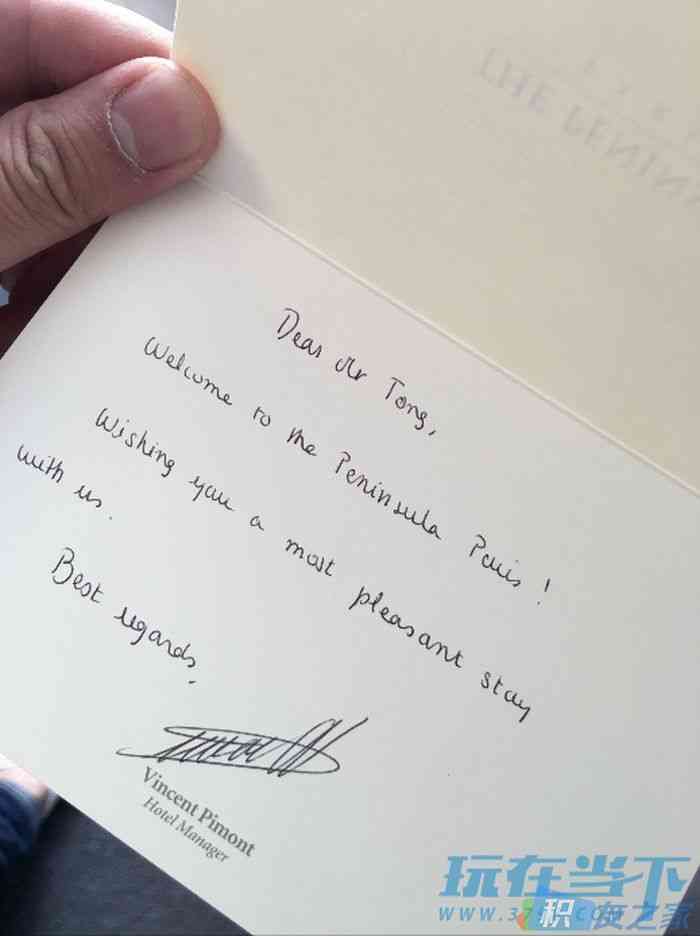 THE PENIN
Dear Mr Tong,
Welcome to the Peninsula Paris !
Wishing you a most pleasant stay
with us.
Best regards,
Vincent Pimont
Hotel Manager
玩在当下
积友之家